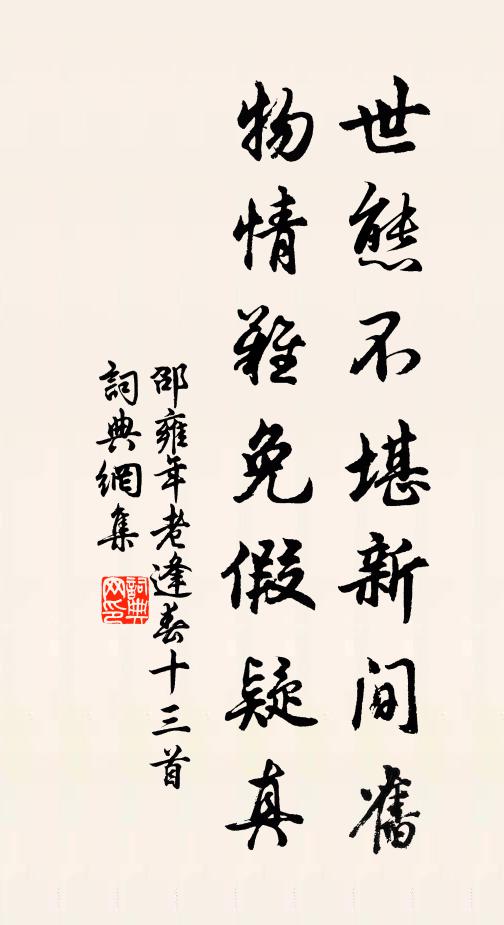 世態不堪新间舊
物情難免假疑真
邵雍年老逢春十三首
詞典網集
詞典
网印